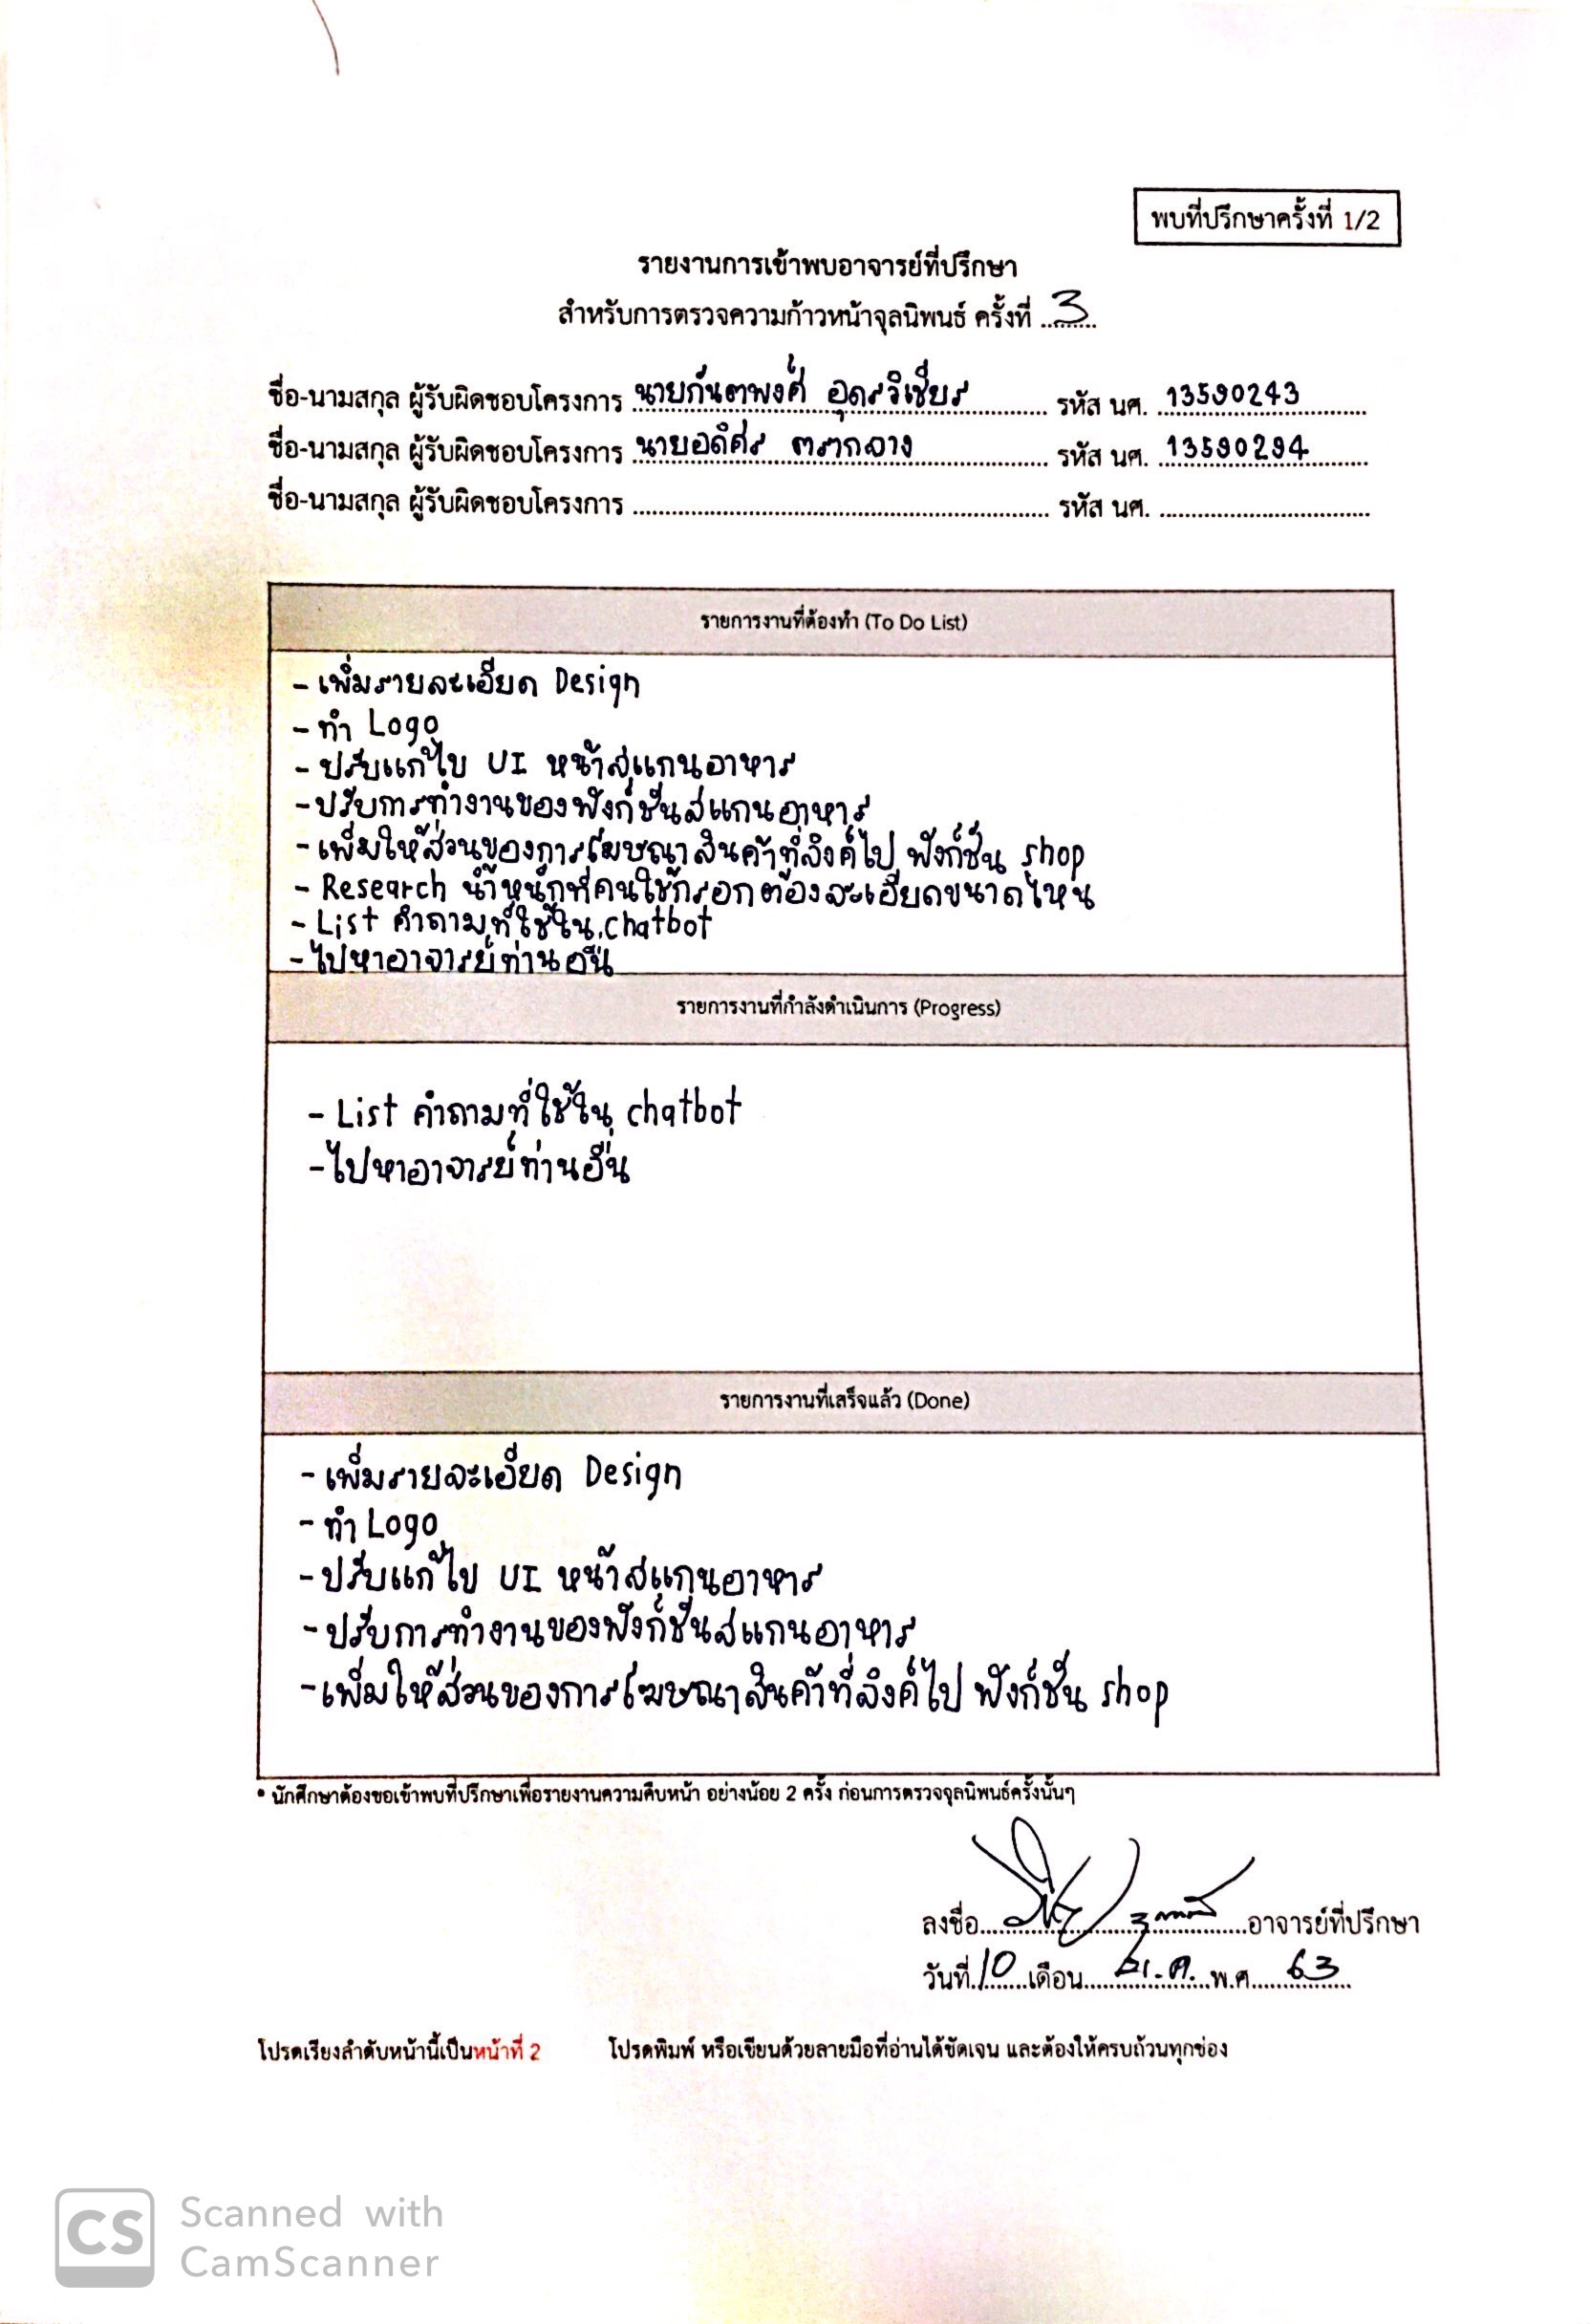 พบที่ปรึกษาครั้งที่ 1/2
รายงานการเข้าพบอาจารย์ที่ปรึกษา
สำหรับการตรวจความก้าวหน้าจุลนิพนธ์ ครั้งที่ 3
ชื่อ-นามสกุล ผู้รับผิดชอบโครงการ นายกันตพงศ์ อุดรวิเชียร รหัส นศ. 13590243
ชื่อ-นามสกุล ผู้รับผิดชอบโครงการ นายอดิศร ตรากลาง รหัส นศ. 13590294
ชื่อ-นามสกุล ผู้รับผิดชอบโครงการ รหัส นศ.
รายการงานที่ต้องทำ (To Do List)
- เพิ่มรายละเอียด Design
- ทำ Logo
- ปรับแก้ไข UI หน้าสแกนอาหาร
- ปรับการทำงานของฟังก์ชันสแกนอาหาร
- เพิ่มให้ส่วนของการโฆษณาสินค้าที่ลิงค์ไป ฟังก์ชั่น shop
- Research น้ำหนักที่คนใช้กรอกต้องละเอียดขนาดไหน
- List คำถามที่ใช้ใน chatbot
- ไปหาอาจารย์ท่านอื่น
รายการงานที่กำลังดำเนินการ (Progress)
- List คำถามที่ใช้ใน chatbot
- ไปหาอาจารย์ท่านอื่น
รายการงานที่เสร็จแล้ว (Done)
- เพิ่มรายละเอียด Design
- ทำ Logo
- ปรับแก้ไข UI หน้าสแกนอาหาร
- ปรับการทำงานของฟังก์ชันสแกนอาหาร
- เพิ่มให้ส่วนของการโฆษณาสินค้าที่ลิงค์ไป ฟังก์ชั่น shop
* นักศึกษาต้องขอเข้าพบที่ปรึกษาเพื่อรายงานความคืบหน้า อย่างน้อย 2 ครั้ง ก่อนการตรวจจุลนิพนธ์ครั้งนั้นๆ
ลงชื่อ อาจารย์ที่ปรึกษา
วันที่ 10 เดือน พ.ศ. 63
โปรดเรียงลำดับหน้านี้เป็นหน้าที่ 2 โปรดพิมพ์ หรือเขียนด้วยลายมือที่อ่านได้ชัดเจน และต้องให้ครบถ้วนทุกช่อง
CS Scanned with
CamScanner